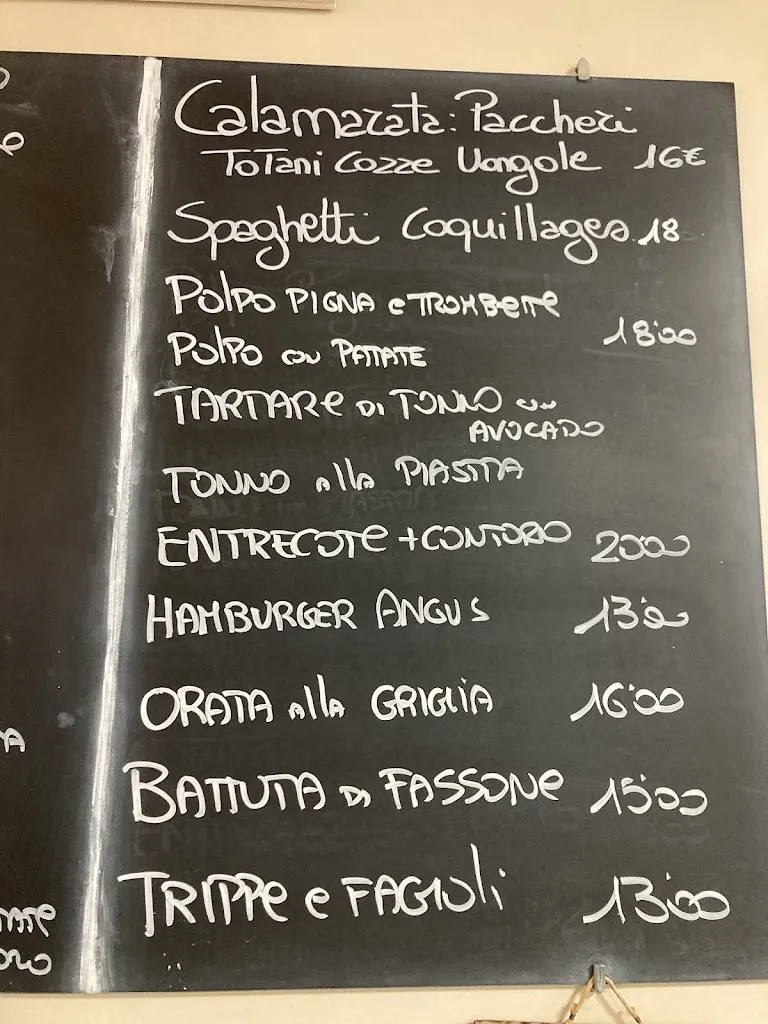 Calamarata: Paccheri
Totani Cozze Vongole 16€
Spaghetti Coquillages 18
POLPO PIGNA e TROMBETTE
18'00
POLPO con PATATE
TARTARE DI TONNO con
AVOCADO
TONNO alla PIASTRA
ENTRECOTE + CONTORNO 20'00
HAMBURGER ANGUS 13'00
ORATA alla GRIGLIA 16'00
BATTUTA DI FASSONE 15'00
TRIPPE e FAGIOLI 13'00